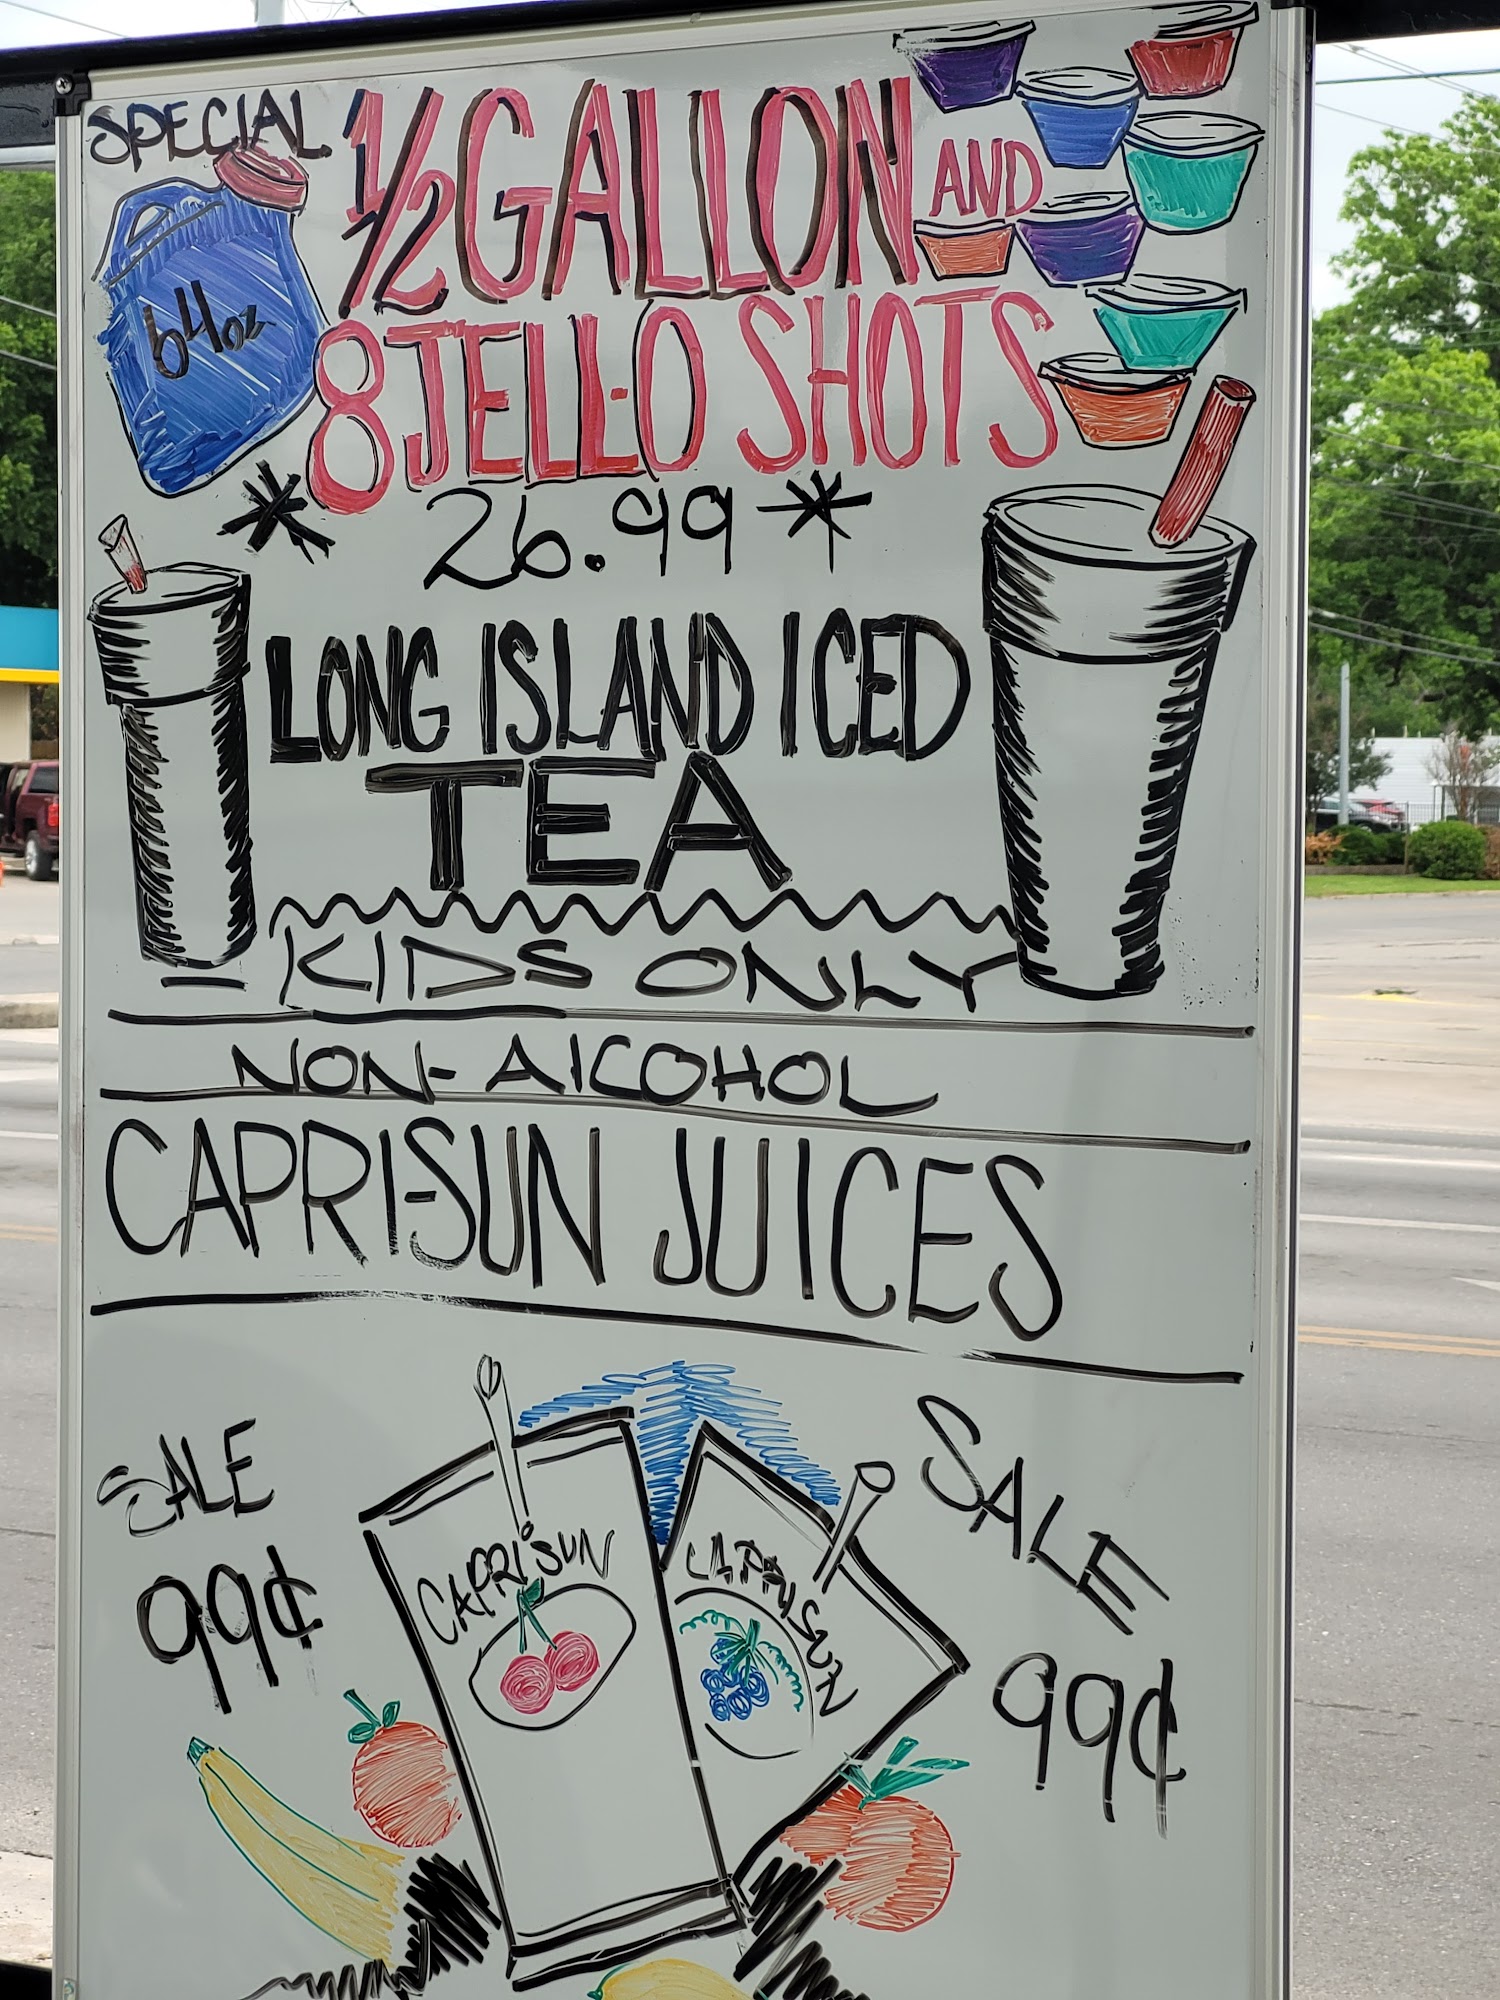 SPECIAL
1/2 GALLON AND
64oz
8 JELL-O SHOTS
* 26.99 *
LONG ISLAND ICED
TEA
- KIDS ONLY
NON-ALCOHOL
CAPRI-SUN JUICES
SALE
99¢
CAPRISUN
CAPRISUN
SALE
99¢